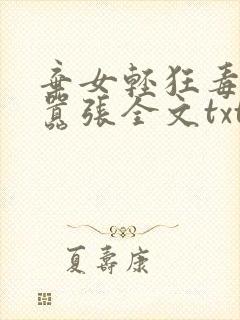 弃女輕狂毒
囂張全文txt
夏壽康